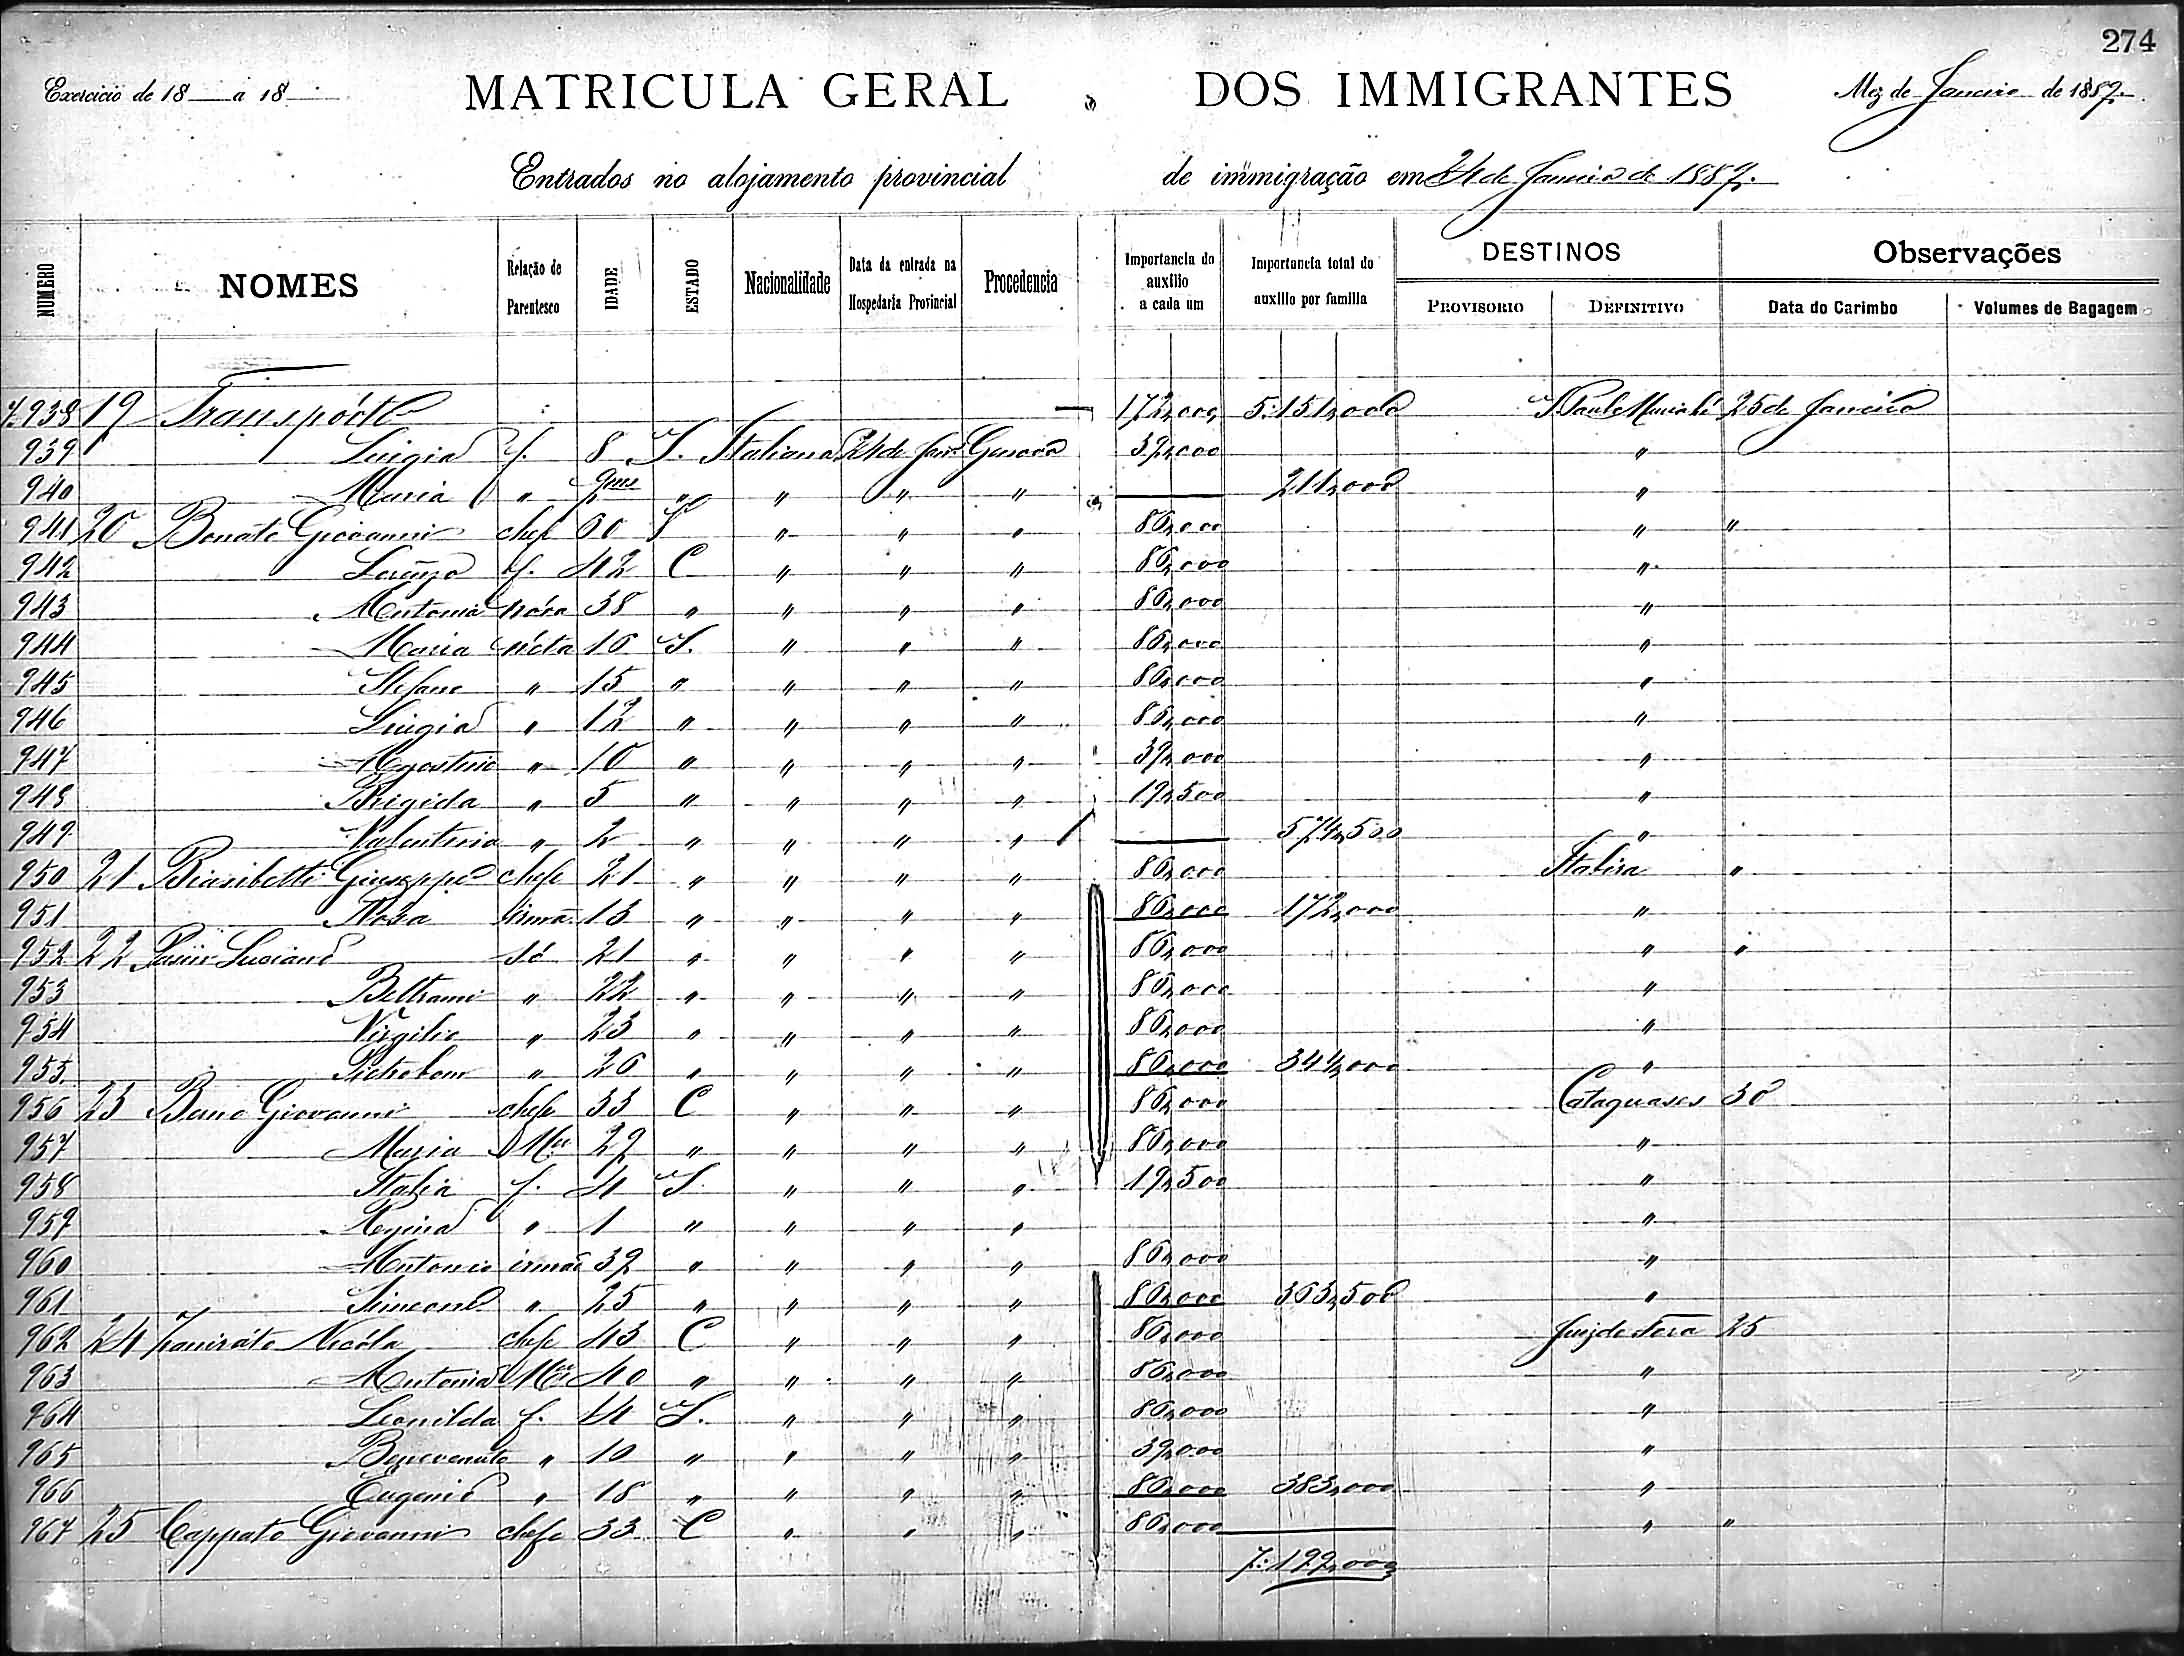 274
Exercicio de 18 a 18 MATRICULA GERAL DOS IMMIGRANTES Mez de Janeiro de 1889.
Entrados no alojamento provincial de immigração em 24 de Janeiro de 1889.
NUMERO NOMES Relação de Parentesco IDADE ESTADO Nacionalidade Data da entrada na Hospedaria Provincial Procedencia Importancia do auxilio a cada um Importancia total do auxilio por familia DESTINOS PROVISORIO DEFINITIVO Observações Data do Carimbo Volumes de Bagagem
938 19 Transpórte 172,000 5:151,000 S. Paulo Muriahé 25 de Janeiro
939 Luigia f. 8 S. Italiana 24 de Janº Genova 39,000 "
940 Maria " 9 mes " " " " 211,000 "
941 20 Bonato Giovanni chefe 60 " " " 86,000 " "
942 Lorenzo f. 42 C " " " 86,000 "
943 Antonia nóra 38 " " " " 86,000 "
944 Maria néta 16 S. " " " 86,000 "
945 Stefano " 15 " " " " 86,000 "
946 Luigia " 12 " " " " 86,000 "
947 Agostino " 10 " " " " 39,000 "
948 Brigida " 5 " " " " 19,500 "
949 Valentino " 2 " " " " 574,500 "
950 21 Biasibetti Giuseppe chefe 21 " " " " 86,000 Itabira "
951 Rosa irmã 13 " " " " 86,000 172,000 "
952 22 Luciano só 21 " " " " 86,000 " "
953 Beltrami " 22 " " " " 86,000 "
954 Virgilio " 23 " " " " 86,000 "
955 " 26 " " " " 86,000 344,000 "
956 23 Giovanni chefe 33 C " " " 86,000 Cataguases 30
957 Maria Mer 29 " " " " 86,000 "
958 Italia f. 4 S. " " " 19,500 "
959 Regina " 1 " " " " "
960 Antonio irmão 39 " " " " 86,000 "
961 Simeone " 25 " " " " 86,000 363,500 "
962 24 Nicóla chefe 43 C " " " 86,000 Juiz de Fora 25
963 Antonia Mer 40 " " " " 86,000 "
964 Leonilda f. 14 S. " " " 86,000 "
965 Benevenuto " 10 " " " " 39,000 "
966 Eugenio " 18 " " " " 86,000 383,000 "
967 25 Cappato Giovanni chefe 33 C " " " 86,000 " "
7:199,000